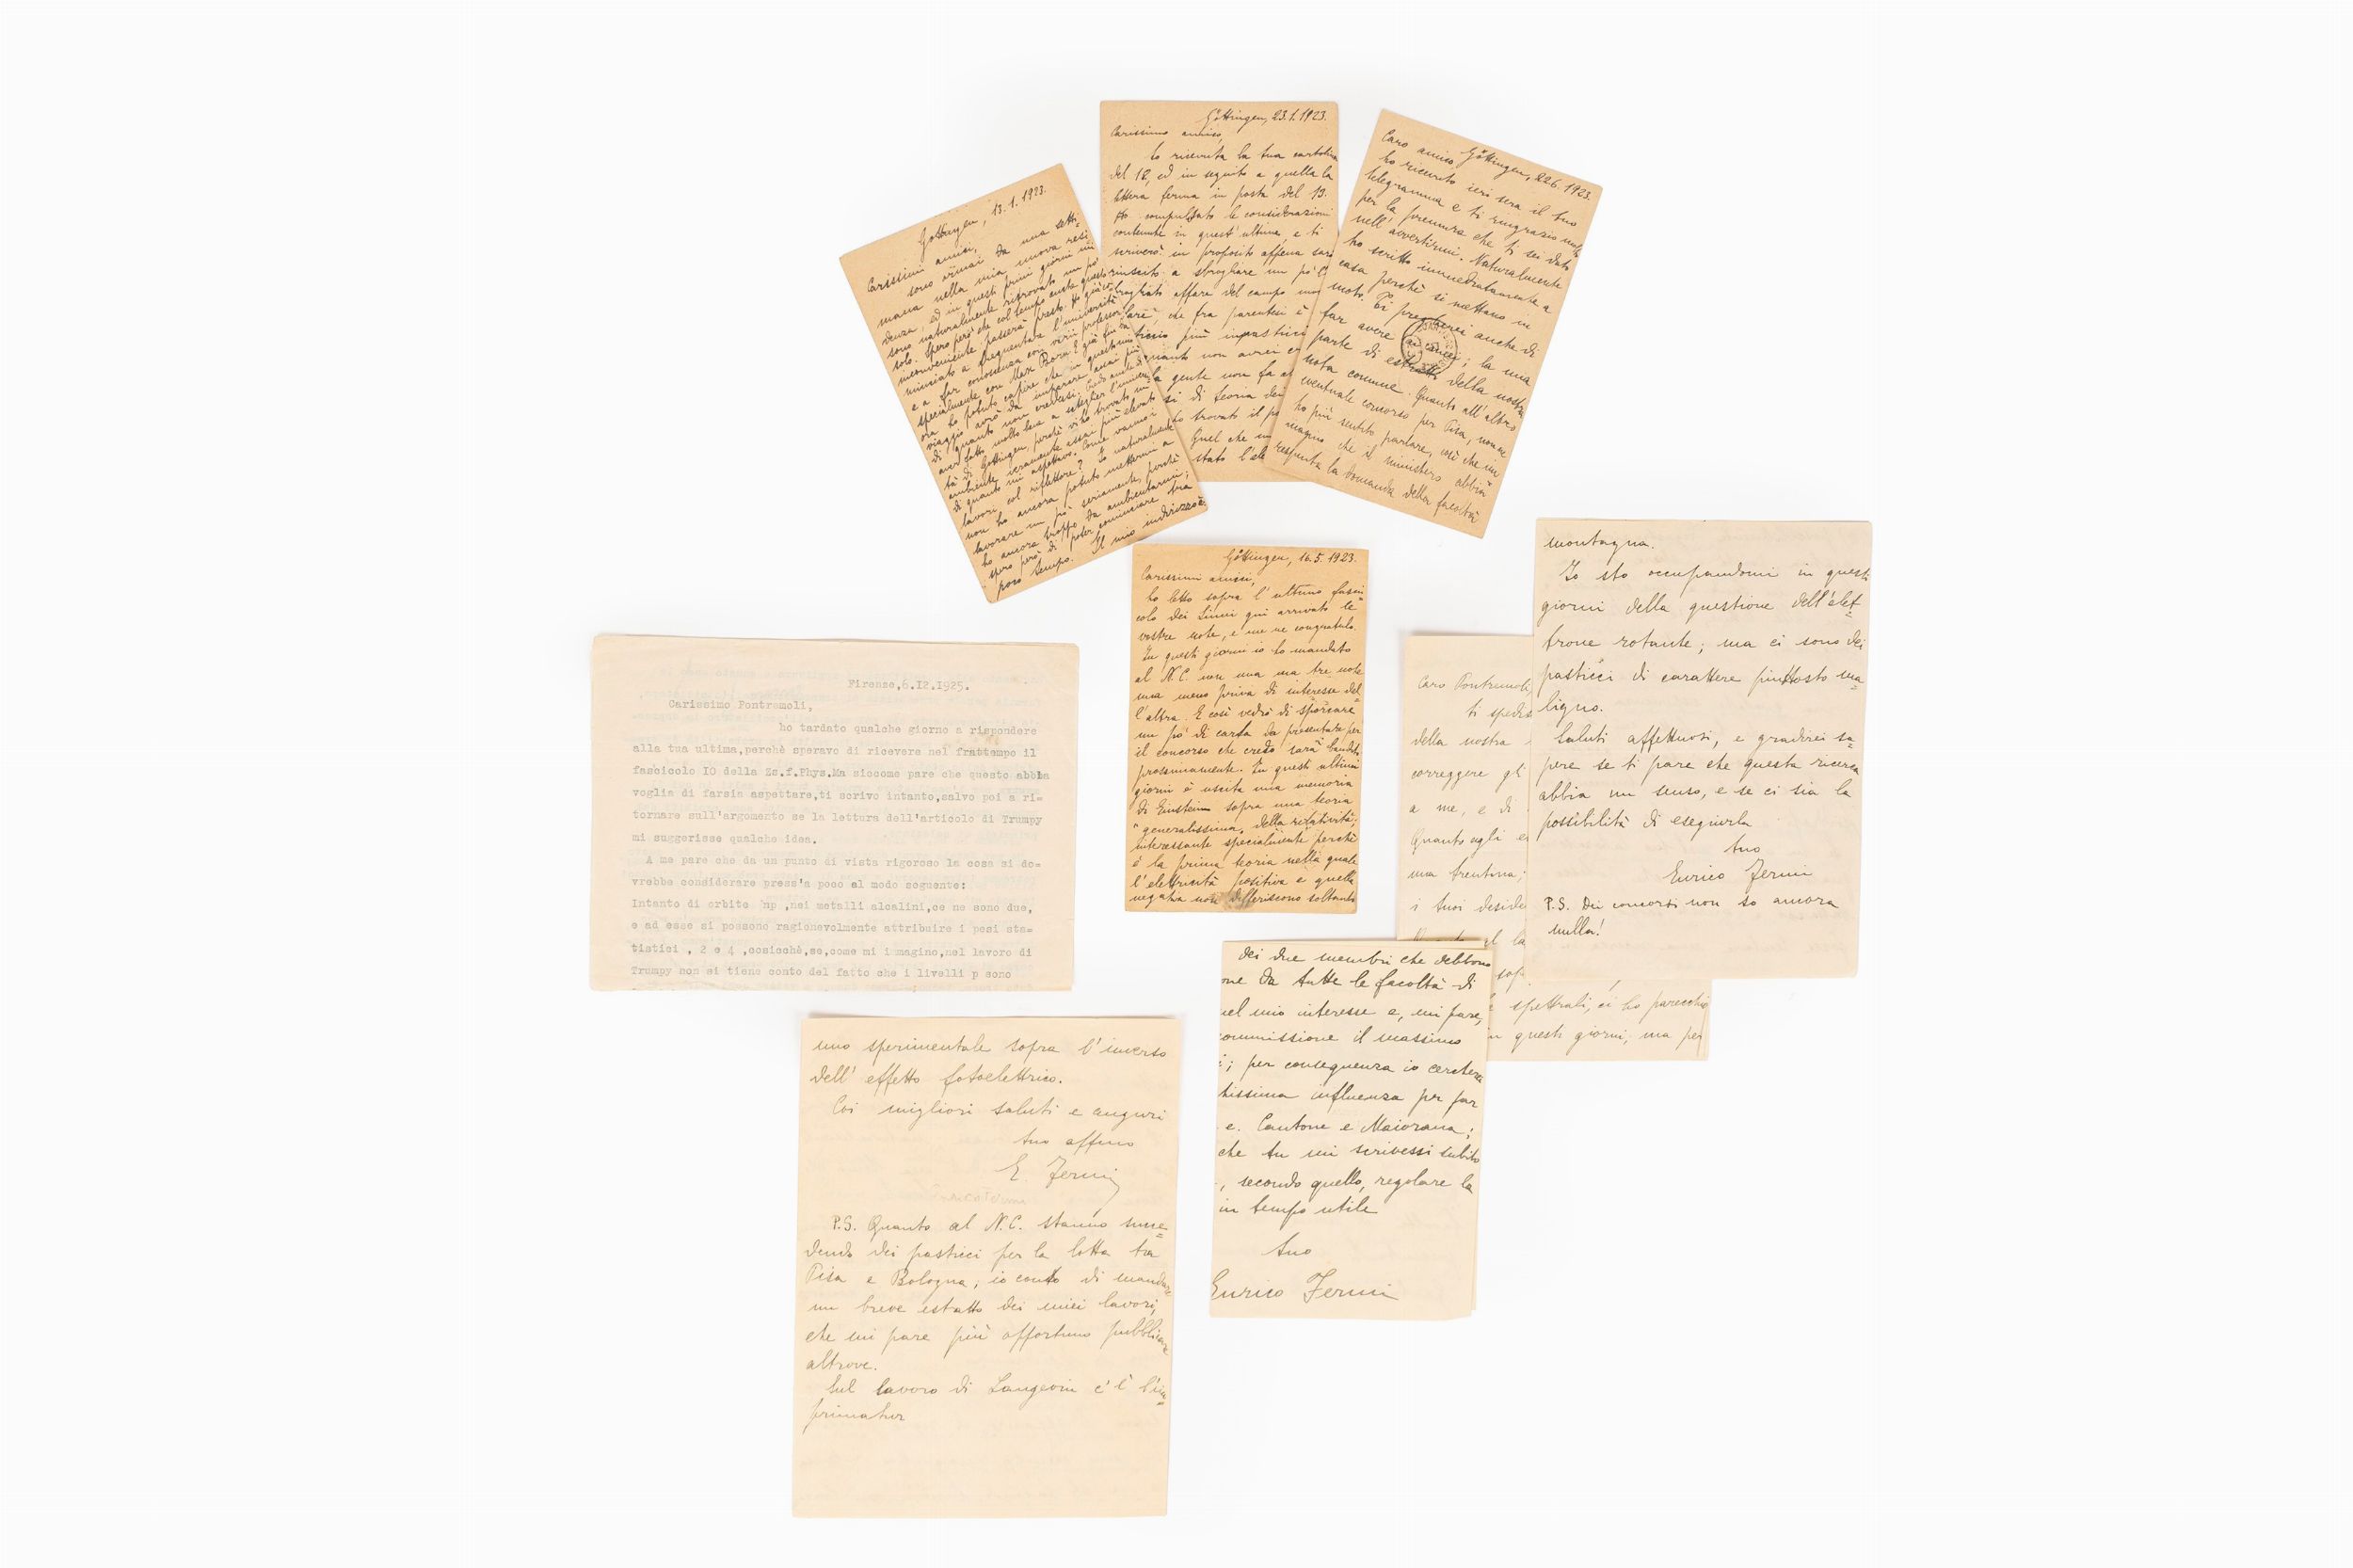 Göttingen, 13.1.1923.
Carissimi amici,
sono ormai da una setti-
mana nella mia nuova resi
denza, ed in questi primi giorni mi
sono naturalmente ritrovato un po'
solo. Spero però che col tempo anche questo
inconveniente passerà presto. Ho già co
minciato a frequentare l'università
e a far conoscenza con varii professori
specialmente con Max Born. E già fin
ora ho potuto capire che in questo mio
viaggio avrò da imparare assai più
di quanto non credessi. Credo anche di
aver fatto molto bene a scegliere l'universi
tà di Göttingen, perché vi ho trovato un
ambiente veramente assai più elevato
di quanto mi aspettavo. Come vanno i
lavori col riflettore? Io naturalmente
non ho ancora potuto mettermi a
lavorare un po' seriamente, perché
ho ancora troppo da ambientarmi;
spero però di poter cominciare tra
poco tempo. Il mio indirizzo è
Göttingen, 23.1.1923.
Carissimo amico,
ho ricevuta la tua cartolina
del 12, ed in seguito a quella la
lettera ferma in posta del 13.
Ho compulsato le considerazioni
contenute in quest'ultima e ti
scriverò in proposito appena sarò
riuscito a sbrogliare un po' l
affare del campo
che fra parentesi è
ticcio più impasticci
quanto non avrei c
la gente non fa a
si di teoria dei
ho trovato il p
Quel che m
stato l'ele
Göttingen, 22.6.1923.
Caro amico
ho ricevuto ieri sera il tuo
telegramma e ti ringrazio molto
per la premura che ti sei dato
nell'avvertirmi. Naturalmente
ho scritto immediatamente a
casa perché si mettano in
moto. Ti pregherei anche di
far avere ai miei; la una
parte di estratti della nostra
nota comune. Quanto all'altro
eventuale concorso per Pisa, non ne
ho più sentito parlare, così che im
magino che il ministero abbia
respinta la domanda della facoltà
Göttingen, 16.5.1923.
Carissimi amici,
ho letto sopra l'ultimo fasci=
colo dei Lincei qui arrivato le
vostre note, e me ne congratulo.
In questi giorni io ho mandato
al N.C. non una ma tre note
una meno priva di interesse del
l'altra. E così vedrò di sporcare
un po' di carta da presentare per
il concorso che credo sarà bandito
prossimamente. In questi ultimi
giorni è uscita una memoria
di Einstein sopra una teoria
"generalissima" della relatività;
interessante specialmente perché
è la prima teoria nella quale
l'elettricità positiva e quella
negativa non differiscono soltanto
Firenze,6.I2.I925.
Carissimo Pontremoli,
ho tardato qualche giorno a rispondere
alla tua ultima,perchè speravo di ricevere nel frattempo il
fascicolo IO della Zs.f.Phys.Ma siccome pare che questo abbia
voglia di farsin aspettare,ti scrivo intanto,salvo poi a ri=
tornare sull'argomento se la lettura dell'articolo di Trumpy
mi suggerisse qualche idea.
A me pare che da un punto di vista rigoroso la cosa si do=
vrebbe considerare press'a poco al modo seguente:
Intanto di orbite np ,nei metalli alcalini,ce ne sono due,
e ad esse si possono ragionevolmente attribuire i pesi sta=
tistici , 2 e 4 ,cosicchè,se,come mi immagino,nel lavoro di
Trumpy non si tiene conto del fatto che i livelli p sono
Caro Pontremoli,
ti spedis
della nostra
correggere gl
a me, e di
Quanto agli e
ma trentina;
i tuoi deside
spettrali, ci ho parecchio
questi giorni; ma per
montagna.
Io sto occupandomi in questi
giorni della questione dell'elet=
trone rotante; ma ci sono dei
pasticci di carattere piuttosto ma=
ligno.
Saluti affettuosi, e gradirei sa=
pere se ti pare che questa ricerca
abbia un senso, e se ci sia la
possibilità di eseguirla
tuo
Enrico Fermi
P.S. Dei concorsi non so ancora
nulla!
dei due membri che debbono
one da tutte le facoltà di
nel mio interesse e, mi pare,
ommissione il massimo
; per conseguenza io cercherei
tissima influenza per far
e. Cantone e Maiorana;
che tu mi scrivessi subito
, secondo quello, regolare la
in tempo utile
tuo
Enrico Fermi
uno sperimentale sopra l'inverso
dell'effetto fotoelettrico.
Coi migliori saluti e auguri
tuo affmo
E. Fermi
Enrico Fermi
P.S. Quanto al N.C. stanno succe=
dendo dei pasticci per la lotta tra
Pisa e Bologna; io conto di mandare
un breve estratto dei miei lavori,
che mi pare più opportuno pubblicare
altrove.
Sul lavoro di Langevin c'è l'im=
primatur